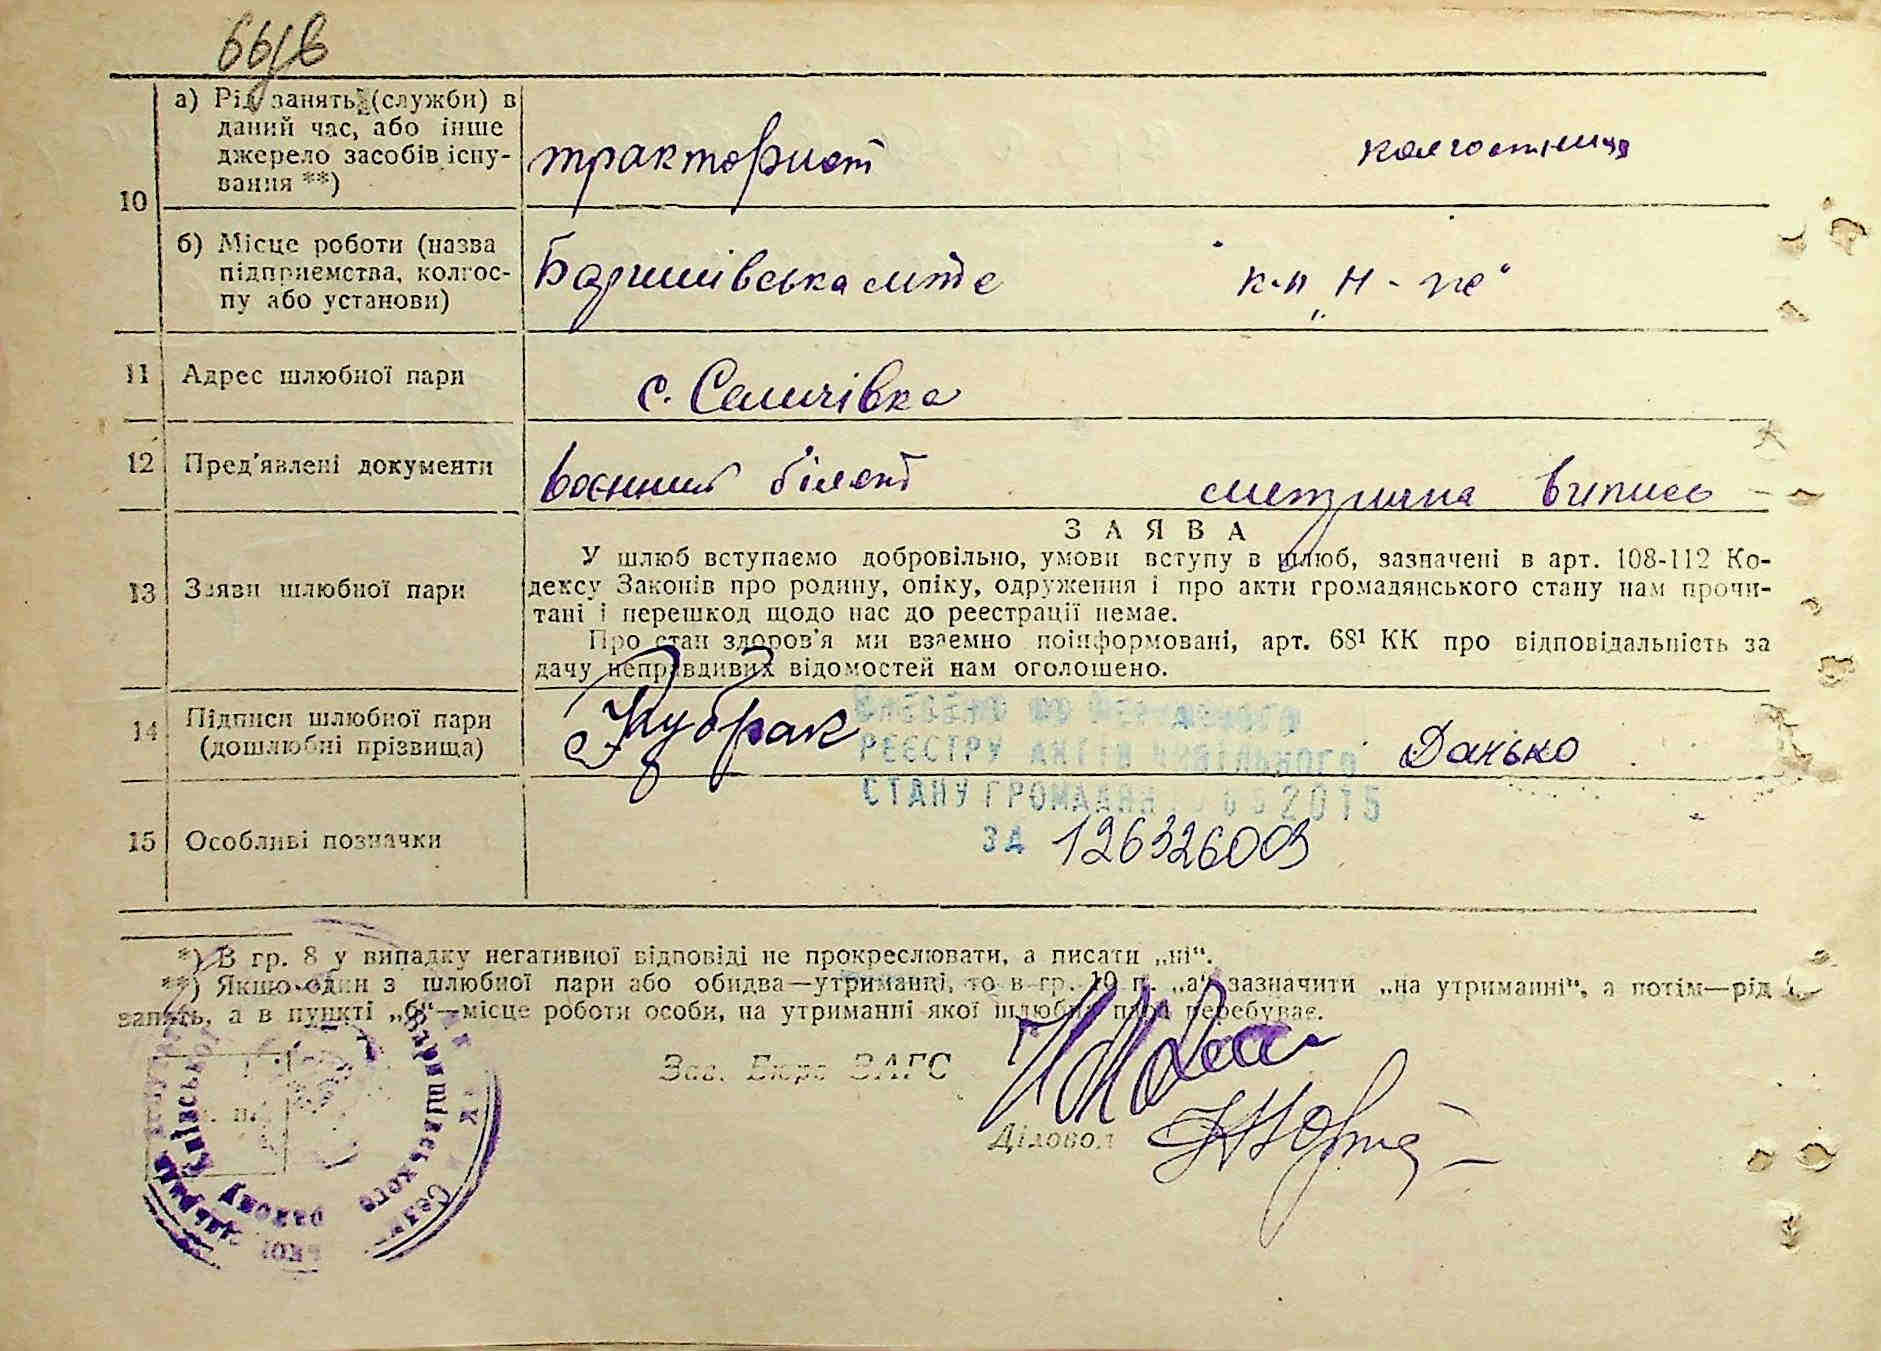 66зв
10
а) Рід занять (служби) в
даний час, або інше
джерело засобів існу-
вання **)
тракторист
колгоспниця
б) Місце роботи (назва
підприємства, колгос-
пу або установи)
Баришівська мтс
к-п „Н-
11 Адрес шлюбної пари
с. Селичівка
12 Пред'явлені документи
воєнний білет
метрична випись
13 Заяви шлюбної пари
ЗАЯВА
У шлюб вступаємо добровільно, умови вступу в шлюб, зазначені в арт. 108-112 Ко-
дексу Законів про родину, опіку, одруження і про акти громадянського стану нам прочи-
тані і перешкод щодо нас до реєстрації немає.
Про стан здоров'я ми взаємно поінформовані, арт. 68¹ КК про відповідальність за
дачу неправдивих відомостей нам оголошено.
14 Підписи шлюбної пари
(дошлюбні прізвища)
Кубрак
Данько
ВНЕСЕНО ДО ДЕРЖАВНОГО
РЕЄСТРУ АКТІВ ЦИВІЛЬНОГО
СТАНУ ГРОМАДЯН 2015
ЗА 126326009
15 Особливі позначки
*) В гр. 8 у випадку негативної відповіді не прокреслювати, а писати „ні“.
**) Якщо один з шлюбної пари або обидва—утриманці, то в гр. 10 п. „а“ зазначити „на утриманні“, а потім—рід
занять, а в пункті „б“—місце роботи особи, на утриманні якої шлюбна пара перебуває.
Зав. Бюро ЗАГС
Діловод
Баришівського
району
Київської